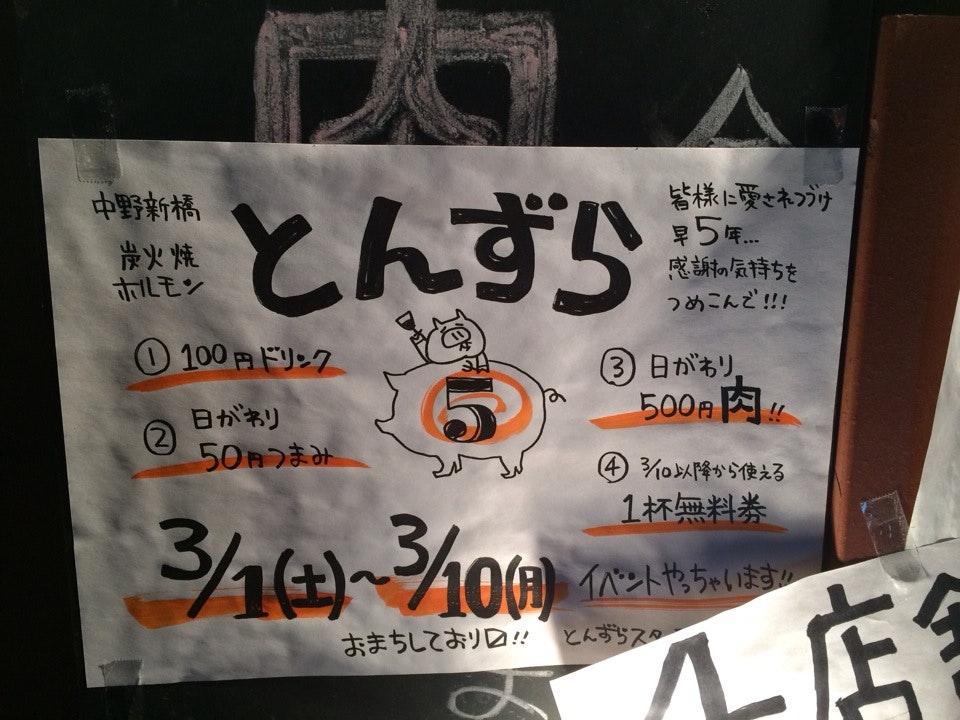 肉
中野新橋
炭火焼
ホルモン
とんずら
皆様に愛されつづけ
早5年...
感謝の気持ちを
つめこんで!!!
① 100円ドリンク
② 日がわり
50円つまみ
5
③ 日がわり
500円肉!!
④ 3/10以降から使える
1杯無料券
3/1(土)~3/10(月)
イベントやっちゃいます!!
おまちしており〼!!
とんずらスタ
店